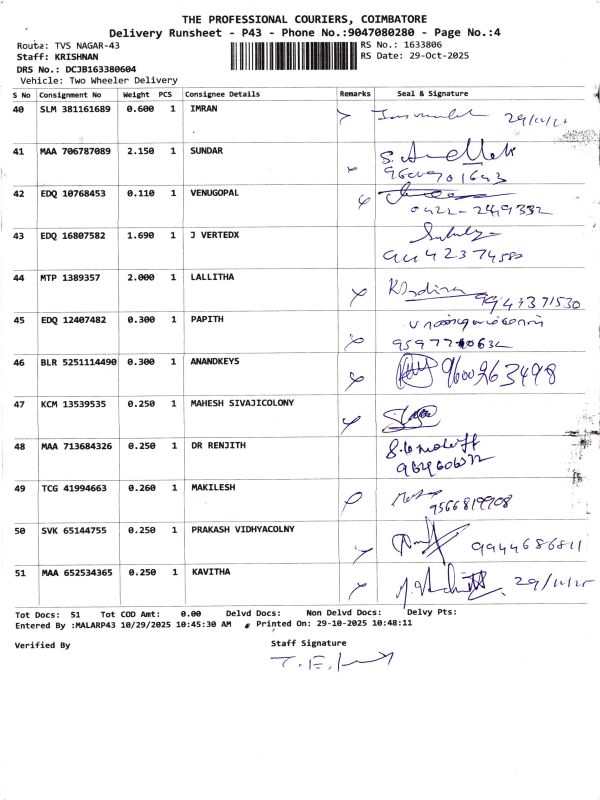 THE PROFESSIONAL COURIERS, COIMBATORE
Delivery Runsheet - P43 - Phone No.:9047080280 - Page No.:4
Route: TVS NAGAR-43 RS No.: 1633806
Staff: KRISHNAN RS Date: 29-Oct-2025
DRS No.: DCJB163380604
Vehicle: Two Wheeler Delivery
S No Consignment No Weight PCS Consignee Details Remarks Seal & Signature
40 SLM 381161689 0.600 1 IMRAN
41 MAA 706787089 2.150 1 SUNDAR
42 EDQ 10768453 0.110 1 VENUGOPAL
0422-2449332
43 EDQ 16807582 1.690 1 J VERTEDX
44 MTP 1389357 2.000 1 LALLITHA
9943371530
45 EDQ 12407482 0.300 1 PAPITH
46 BLR 5251114490 0.300 1 ANANDKEYS 9600263498
47 KCM 13539535 0.250 1 MAHESH SIVAJICOLONY
48 MAA 713684326 0.250 1 DR RENJITH
49 TCG 41994663 0.260 1 MAKILESH
9566819908
50 SVK 65144755 0.250 1 PRAKASH VIDHYACOLNY 9944686811
51 MAA 652534365 0.250 1 KAVITHA
Tot Docs: 51 Tot COD Amt: 0.00 Delvd Docs: Non Delvd Docs: Delvy Pts:
Entered By :MALARP43 10/29/2025 10:45:30 AM Printed On: 29-10-2025 10:48:11
Verified By Staff Signature